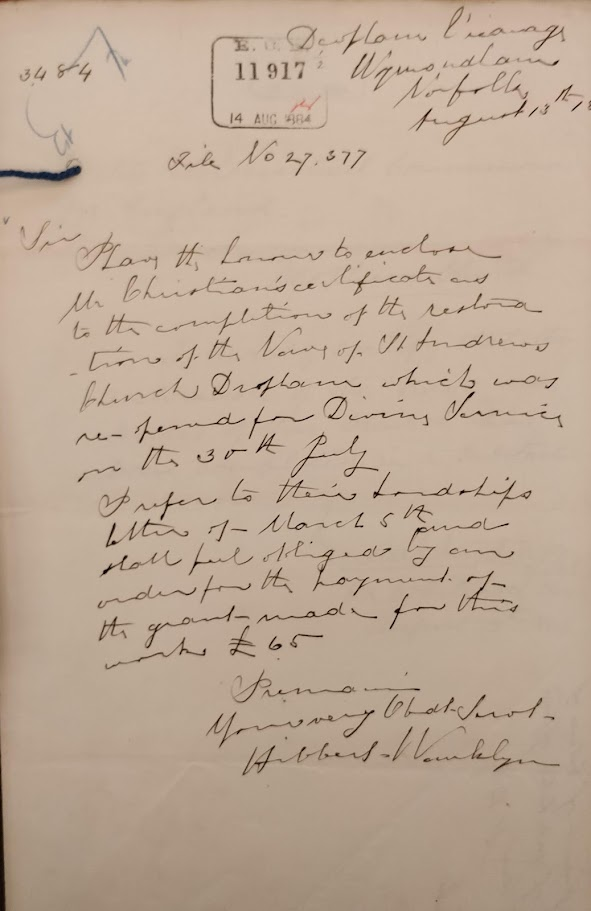 Deopham Vicarage
Wymondham
Norfolk
August 13th 18
3484
E. C.
11917
14 AUG 1884
File No 27,377
Sir
I have the honour to enclose
Mr Christian's certificate as
to the completion of the restora
-tion of the Nave of St Andrews
Church Deopham which was
re-opened for Divine Service
on the 30th July
I refer to their Lordships
letter of March 5th and
shall feel obliged by an
order for the payment of
the grant made for this
work £65
I remain
Your very Obdt Servt
Hibbert Wanklyn